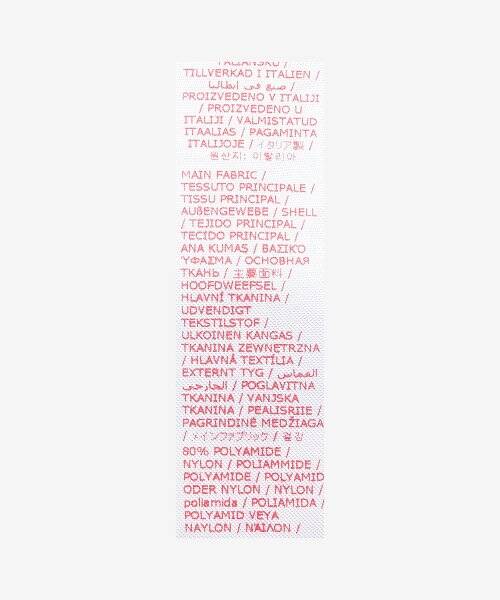 TALIANSKU /
TILLVERKAD I ITALIEN /
صنع في إيطاليا /
PROIZVEDENO V ITALIJI
/ PROIZVEDENO U
ITALIJI / VALMISTATUD
ITAALIAS / PAGAMINTA
ITALIJOJE / イタリア製 /
원산지: 이탈리아
MAIN FABRIC /
TESSUTO PRINCIPALE /
TISSU PRINCIPAL /
AUßENGEWEBE / SHELL
/ TEJIDO PRINCIPAL /
TECIDO PRINCIPAL /
ANA KUMAS / ΒΑΣΙΚΌ
ΎΦΑΣΜΑ / ОСНОВНАЯ
ТКАНЬ / 主要面料 /
HOOFDWEEFSEL /
HLAVNÍ TKANINA /
UDVENDIGT
TEKSTILSTOF /
ULKOINEN KANGAS /
TKANINA ZEWNĘTRZNA
/ HLAVNÁ TEXTÍLIA /
EXTERNT TYG / القماش
الخارجي / POGLAVITNA
TKANINA / VANJSKA
TKANINA / PEALISRIIE /
PAGRINDINĖ MEDŽIAGA
/ メインファブリック / 겉감
80% POLYAMIDE /
NYLON / POLIAMMIDE /
POLYAMIDE / POLYAMID
ODER NYLON / NYLON /
poliamida / POLIAMIDA /
POLYAMID VEYA
NAYLON / ΝΆΙΛΟΝ /